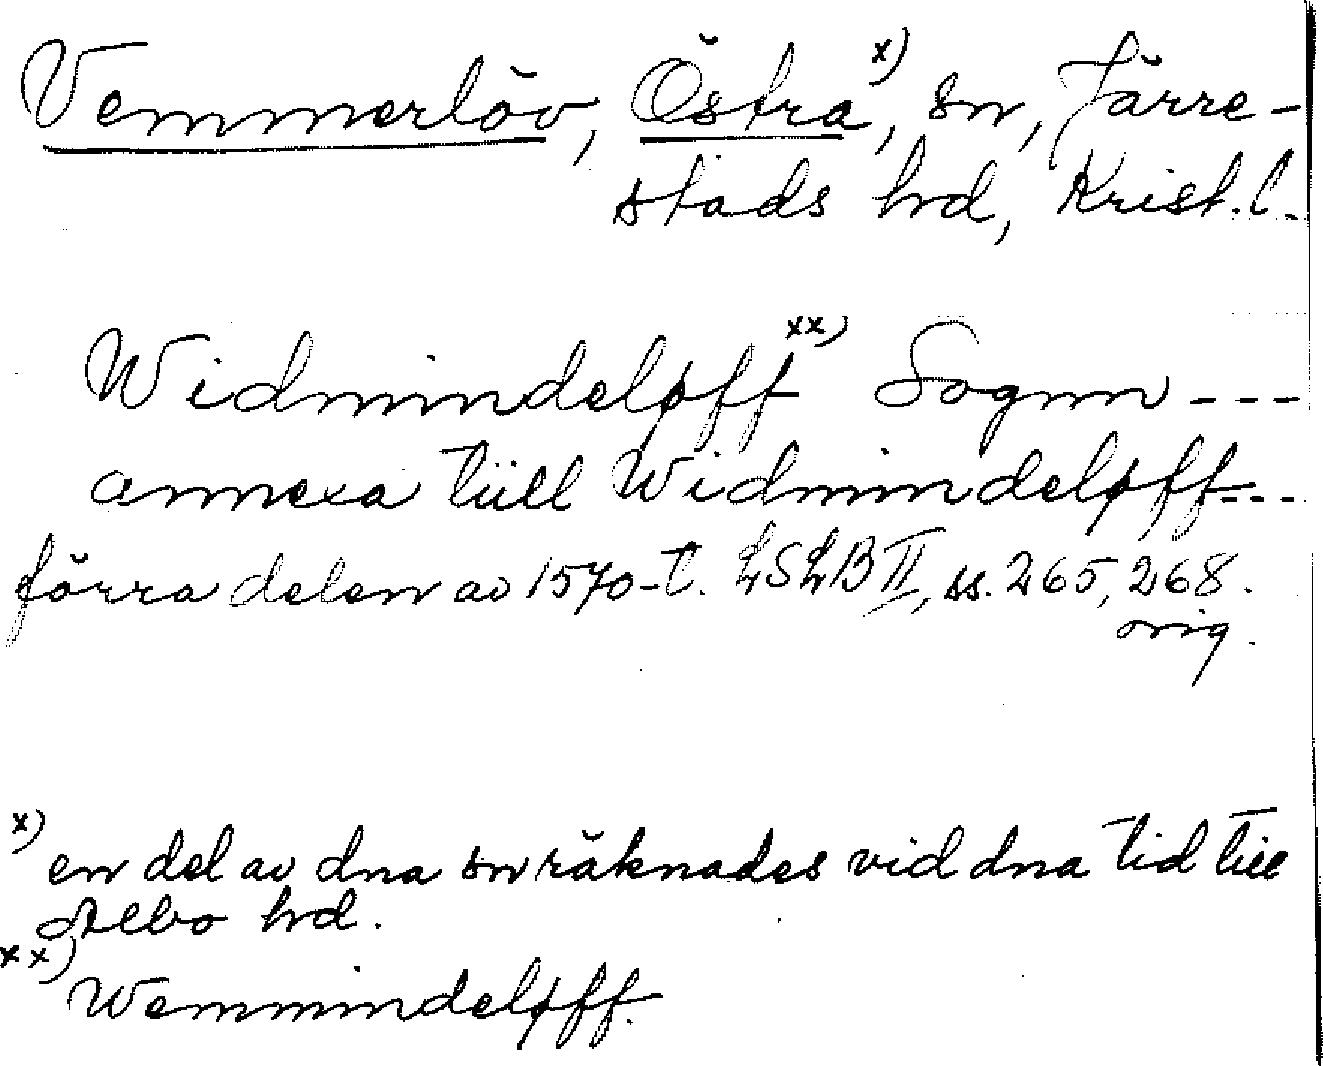 Vemmerlöv, Östra x), sn, Järre-
stads hd, Krist. l.
Widmindeløff xx) Sognn ---
annexa tiill Widmindeløff ---
förra delen av 1570-t. LSLB II, ss. 265, 268.
orig.
x) en del av dna sn räknades vid dna tid till
Albo hd.
xx) Wemmindeløff.